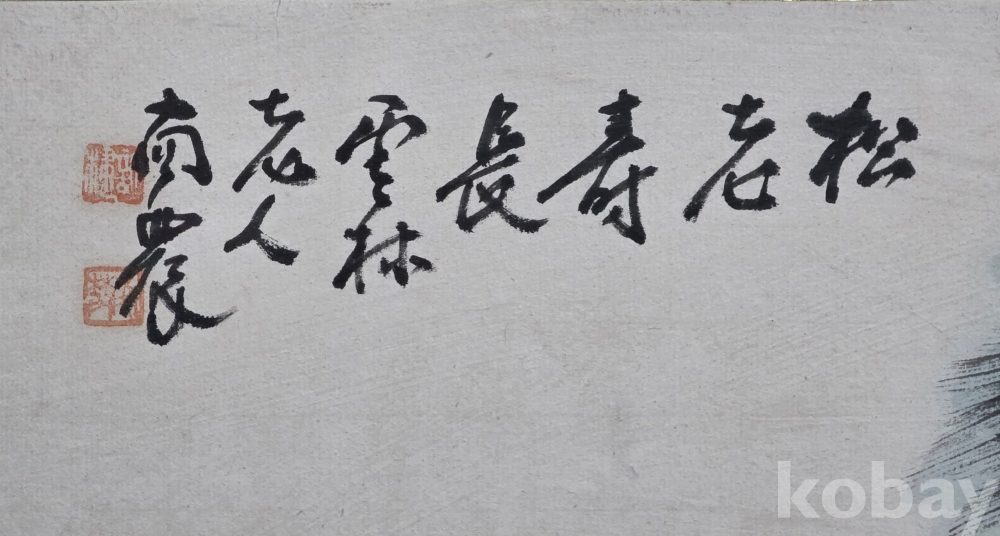 松
老
壽
長
雲林
老人
南農
kobay